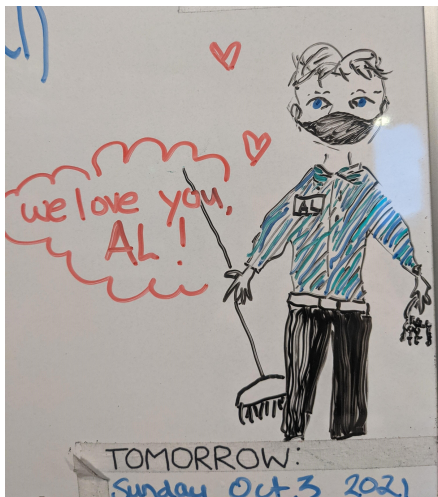 we love you,
AL!
AL
TOMORROW:
Sunday Oct. 3 2021